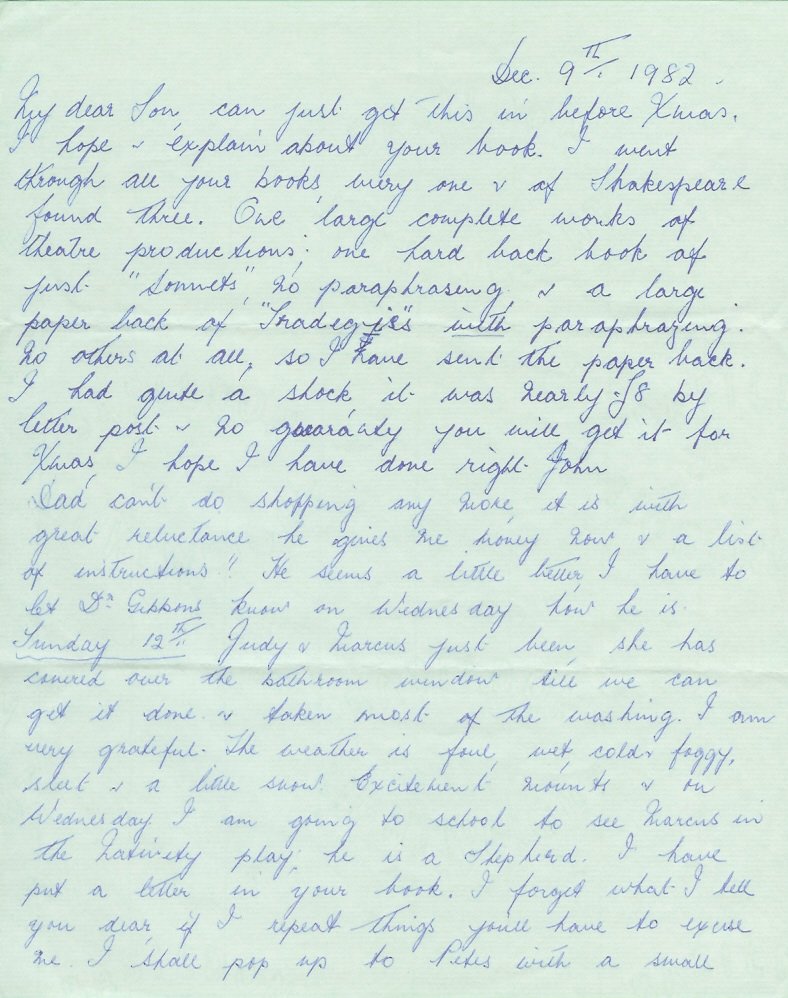 Dec. 9TH. 1982.
My dear Son, can just get this in before Xmas.
I hope & explain about your book. I went
through all your books every one & of Shakespeare
found three. One large complete works of
theatre productions; one hard back book of
just "Sonnets", no paraphrasing, & a large
paper back of "Tradegies" with paraphrazing.
No others at all, so I have sent the paper back.
I had quite a shock it was nearly £8 by
letter post & no guaranty you will get it for
Xmas, I hope I have done right John
Dad can't do shopping any more it is with
great reluctance he gives me money now & a list
of instructions!! He seems a little better I have to
let Dr Gibbons know on Wednesday how he is.
Sunday 12TH. Judy & Marcus just been, she has
covered over the bathroom window till we can
get it done. & taken most of the washing. I am
very grateful. The weather is foul, wet, cold & foggy,
sleet & a little snow. Excitement mounts & on
Wednesday I am going to school to see Marcus in
the Nativity play, he is a Shepherd. I have
put a letter in your book. I forget what I tell
you dear if I repeat things youll have to excuse
me. I shall pop up to Petes with a small